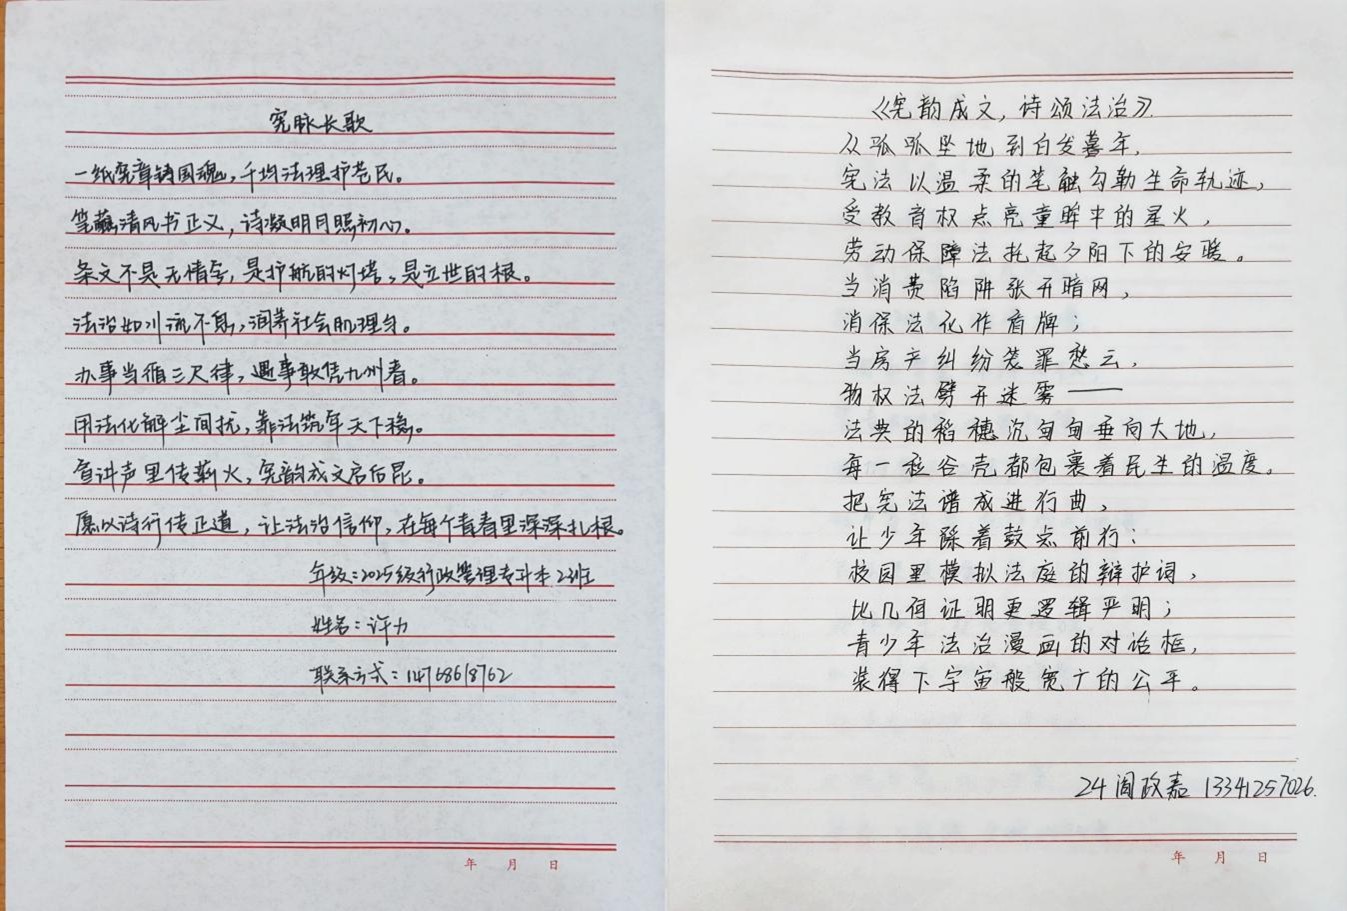 宪脉长歌
一纸宪章铸国魂，千均法理护苍民。
笔蘸清风书正义，诗凝明月照初心。
条文不是无情字，是护航的灯塔，是立世的根。
法治如川流不息，润养社会肌理身。
办事当循三尺律，遇事敢凭九州看。
用法化解尘间扰，靠法筑牢天下稳。
宣讲声里传薪火，宪韵成文启后昆。
愿以诗行传正道，让法治信仰，在每个青春里深深扎根。
年级：2025级行政管理专升本2班
姓名：许力
联系方式：14768618762
年 月 日
《宪韵成文，诗颂法治》
从呱呱坠地到白发暮年，
宪法以温柔的笔触勾勒生命轨迹，
受教育权点亮童眸中的星火，
劳动保障法托起夕阳下的安暖。
当消费陷阱张开暗网，
消保法化作盾牌；
当房产纠纷笼罩愁云，
物权法劈开迷雾——
法典的稻穗沉甸甸垂向大地，
每一粒谷壳都包裹着民生的温度。
把宪法谱成进行曲，
让少年踩着鼓点前行：
校园里模拟法庭的辩护词，
比几何证明更逻辑严明；
青少年法治漫画的对话框，
装得下宇宙般宽广的公平。
24 阎政嘉 13341257026.
年 月 日